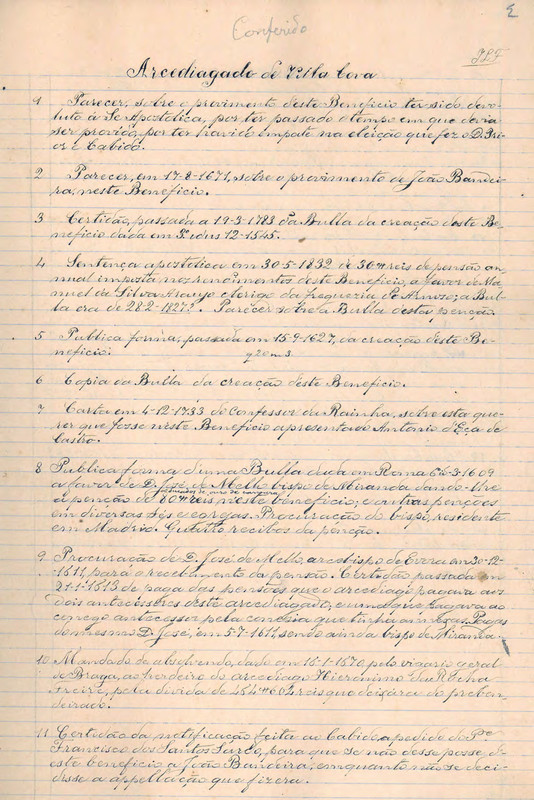 2
Conferido
Arcediagado de Villa Cova
1 Parecer, sobre o provimento deste Beneficio ter sido devo-
luto à Sé Apostolica, por ter passado o tempo em que devia
ser provido, por ter havido empate na eleição que fez o D. Pri-
or e Cabido.
2 Parecer, em 17-8-1671, sobre o provimento de João Bandei-
ra, neste Beneficio.
3 Certidão, passada a 19-3-1783 da Bulla da creação deste Be-
neficio dada em 3º idus 12-1545.
4 Sentença apostolica em 30-5-1832 de 30#reis de pensão an-
nual imposta nos rencimentos deste Beneficio, a favor de Ma-
nuel da Silva Araujo clerigo da freguezia de a Bul-
la era de 28-2-1827?. Parecer sobre a Bulla desta penção.
5 Publica forma, passada em 15-9-1627, da creação deste Be-
neficio.
6 Copia da Bulla da creação deste Beneficio.
7 Carta em 4-12-1733 do Confessor da Rainha, sobre esta que-
rer que fosse neste Beneficio apresentado Antonio d'Eça de
Castro.
8 Publica forma d'uma Bulla dada em Roma 6 -3-1609
a favor de D. José de Mello bispo de Miranda dando-lhe
a penção de 80#reis neste beneficio; e outras penções
em diversas sés e egrejas. Procuração do bispo, residente
em Madrid. Quatro recibos da penção.
9 Procuração de D. José de Mello, arcebispo de Evora em 30-12-
1611, para o recebimento da pensão. Certidão passada em
21-1-1613 de paga das pensões que o arcediago pagava aos
dois antecessores deste arcediagado, e uma que pagava ao
conego antecessor pela conesia que tinha annexa. Pagas
do mesmo D. José, em 5-7-1611, sendo ainda bispo de Miranda.
10 Mandado de absolvendo, dado em 16-1-1570 pelo vigario geral
de Braga, ao herdeiro do arcediago Hieronimo da Rocha
Freire, pela divida de reis que deixára do preben-
deirado.
11 Certidão da notificação feita ao Cabido, a pedido do Pe
Francisco dos Santos para que se não desse posse d'-
este beneficio a João Bandeira, emquanto não se deci-
disse a appellação que fizera.